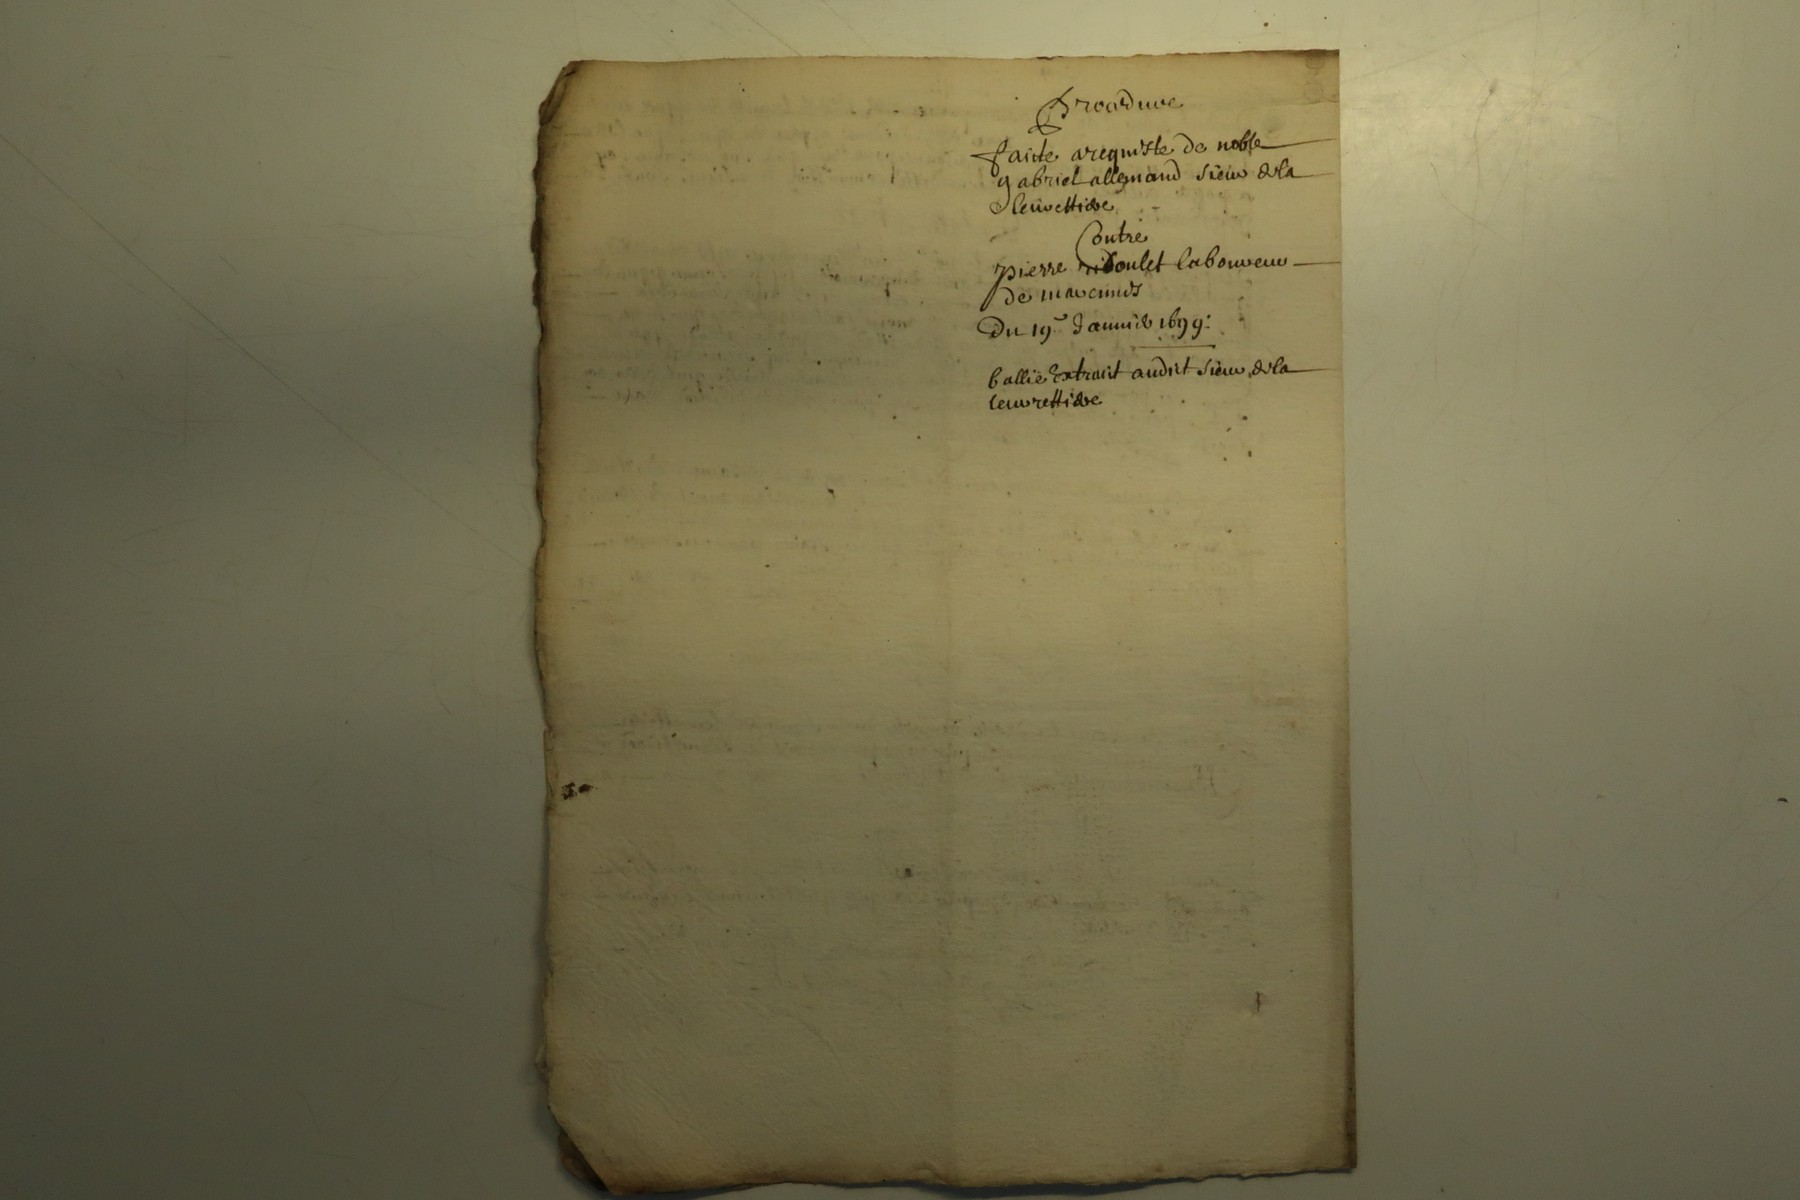 Procedure
faicte a requiste de noble
gabriel allemand sieur de la
leuvettiere
Contre
pierre riboulet laboureur
de
Du 19e Janvier 1699:
ballié Extrait audit sieur de la
leuvrettiere